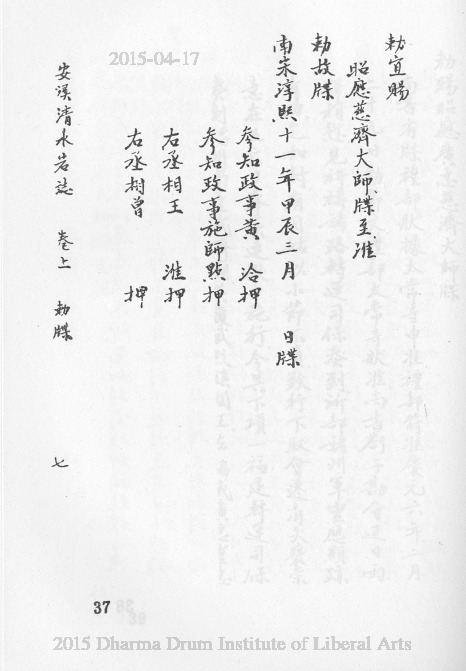 2015-04-17
勅宜賜
昭應慈濟大師牒至准
勅故牒
南宋淳熙十一年甲辰三月　日牒
參知政事黃　洽押
參知政事施師點押
右丞相王　淮押
右丞尉曾　押
安溪清水岩誌　卷上　勅牒　七
37
2015 Dharma Drum Institute of Liberal Arts